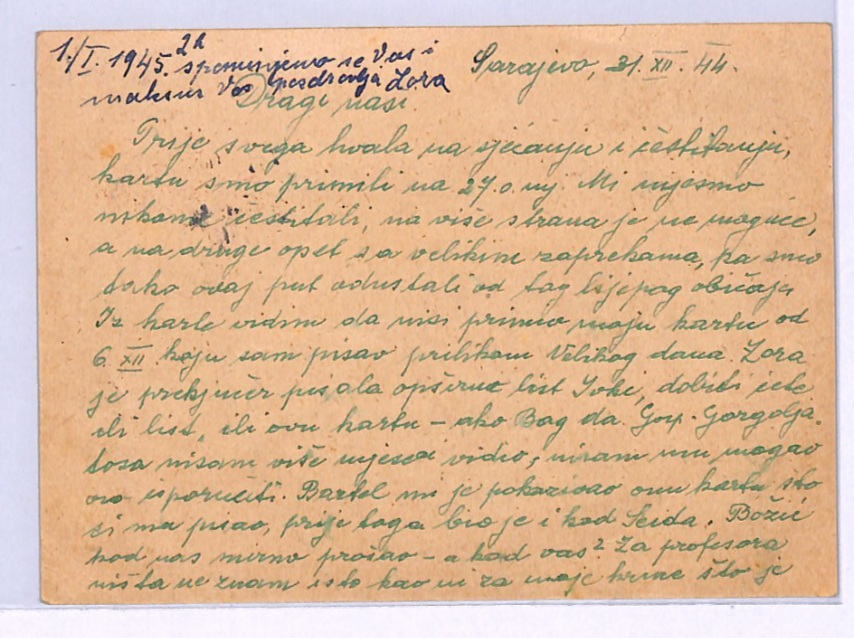 1./I. 1945. spominjemo se Vas i
Vas pozdravlja Zora
Sarajevo, 31. XII. 44.
Dragi naši.
Prije svega hvala na sjećanju i čestitanju,
kartu smo primili na 27. o. mj. Mi nijesmo
nikome čestitali, na više strana je ne moguće,
a na druge opet sa velikim zaprekama, pa smo
tako ovaj put odustali od tog lijepog običaja
Iz karte vidim da nisi primio moju kartu od
6. XII. koju sam pisao prilikom Velikog dana. Zora
je prekjučer pisala opširne list Ivki, dobiti ćete
ili list, ili ovu kartu – ako Bog da. Gosp.
nisam više mjeseci vidio, nisam mu mogao
ono isporučiti. Bartol mi je pokazivao onu kartu što
si mu pisao, prije toga bio je i kod Seida. Božić
kod nas mirno prošao – a kod vas? Za profesora
ništa ne znam isto kao ni za moje što je